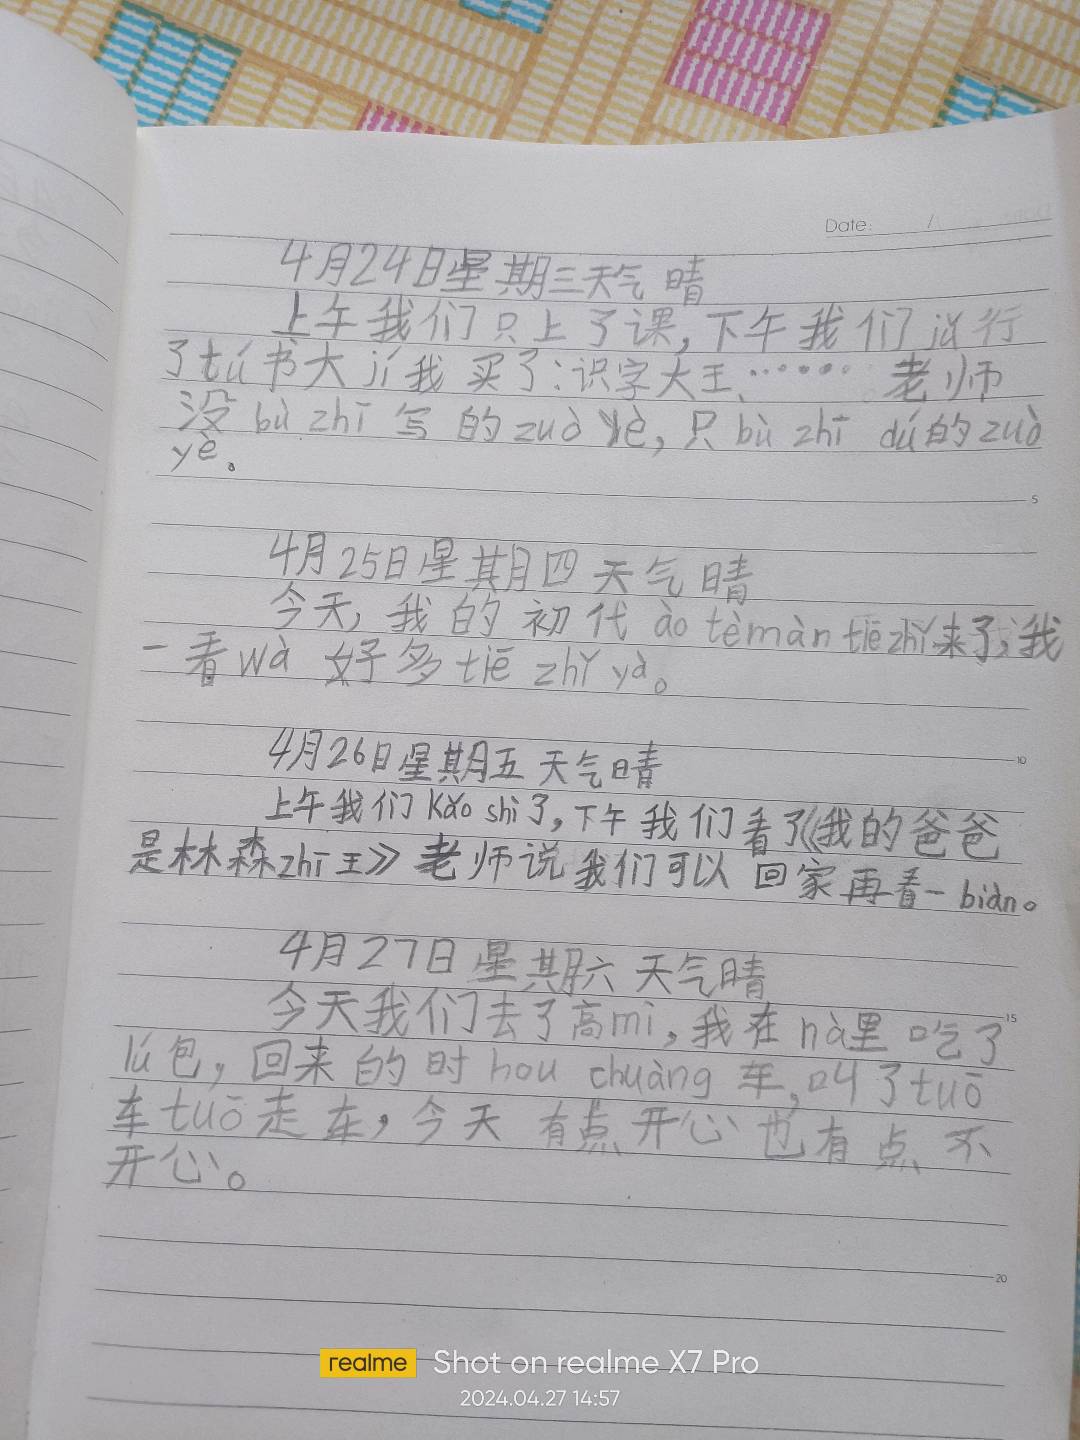 Date: /
4月24日星期三天气 晴
上午我们只上了课,下午我们进行
了tú书大jí我买了:识字大王、……。老师
没bù zhī写的zuò yè,只bù zhī dú的zuò
yè。
5
4月25日星期四 天气晴
今天,我的初代ào tè màn tiē zhǐ来了,我
一看wà 好多tiē zhǐ yà。
4月26日星期五 天气晴
10
上午我们Kǎo shì了,下午我们看了《我的爸爸
是林森zhī王》老师说我们可以回家再看一biàn。
4月27日星期六 天气晴
今天我们去了高mì,我在nà里吃了
15
lú包,回来的时hou chuàng车,叫了tuō
车tuō走车,今天有点开心也有点不
开心。
20
realme Shot on realme X7 Pro
2024.04.27 14:57